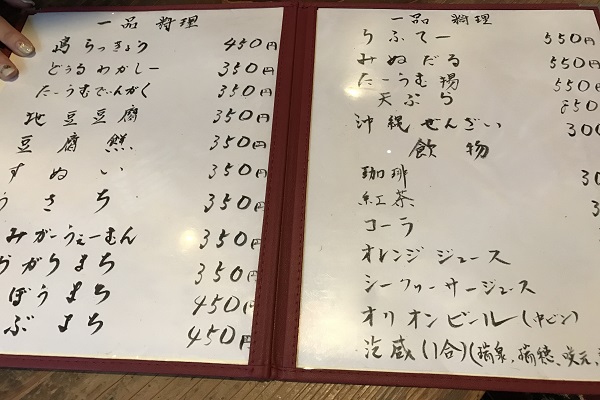 一品料理
島らっきょう 450円
どぅるわかしー 350円
たーうむでぃんがく 350円
地豆豆腐 350円
豆腐𩸽 350円
すぬい 350円
うさち 350円
みがーうぇーむん 350円
がりまち 350円
ぼうまち 450円
ぶまち 450円
一品料理
らふてー 550円
みぬだる 550円
たーうむ揚 550円
天ぷら 550円
沖縄ぜんざい 300
飲物
珈琲 30
紅茶 3
コーラ
オレンジジュース
シークヮーサージュース
オリオンビール(中ビン)
冷蔵(1合)(瑞泉、瑞穂、咲元、